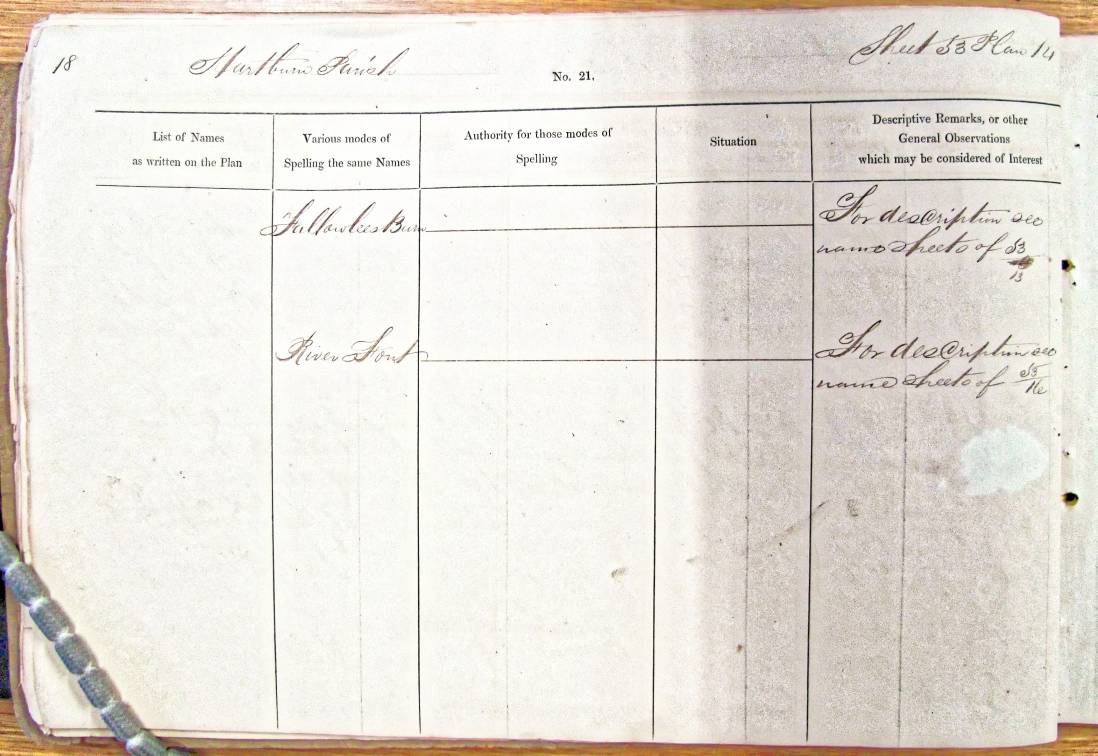 18
Hartburn Parish
No. 21.
Sheet 53 Plan 14
List of Names
as written on the Plan
Various modes of
Spelling the same Names
Authority for those modes of
Spelling
Situation
Descriptive Remarks, or other
General Observations
which may be considered of Interest
Fallowlees Burn
For description see
name sheets of 53
13
River Font
For description see
name sheets of 53
16